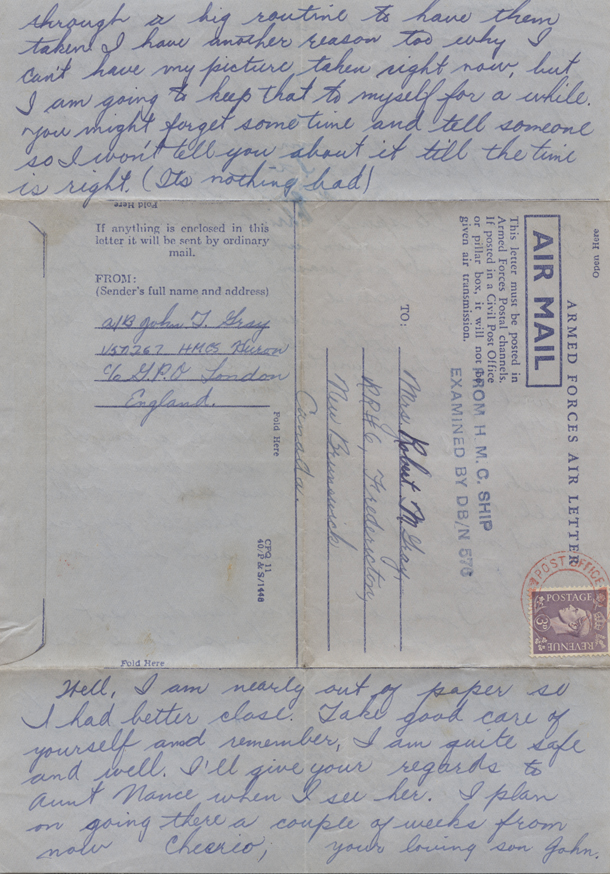 through a big routine to have them
taken. I have another reason too why I
can't have my picture taken right now, but
I am going to keep that to myself for a while.
You might forget sometime and tell someone
so I won't tell you about it till the time
is right. (Its nothing bad)
Fold Here
If anything is enclosed in this
letter it will be sent by ordinary
mail.
FROM:
(Sender's full name and address)
a/B John T. Gray
V50267 HMCS Huron
c/o G.P.O London
England.
Fold Here
CPQ 11
40/P & S/1448
Fold Here
Open Here
ARMED FORCES AIR LETTER
AIR MAIL
This letter must be posted in
Armed Forces Postal channels.
If posted in a Civil Post Office
or pillar box, it will not be
given air transmission.
FROM H.M.C. SHIP
EXAMINED BY DB/N 576
TO:
Mrs Robert M Gray
RR#6, Fredericton,
New Brunswick
Canada.
POST OFFICE
POSTAGE
3D
REVENUE
Well, I am nearly out of paper so
I had better close. Take good care of
yourself and remember, I am quite safe
and well. I'll give your regards to
Aunt Nance when I see her. I plan
on going there a couple of weeks from
now Cheerio, your loving son John.